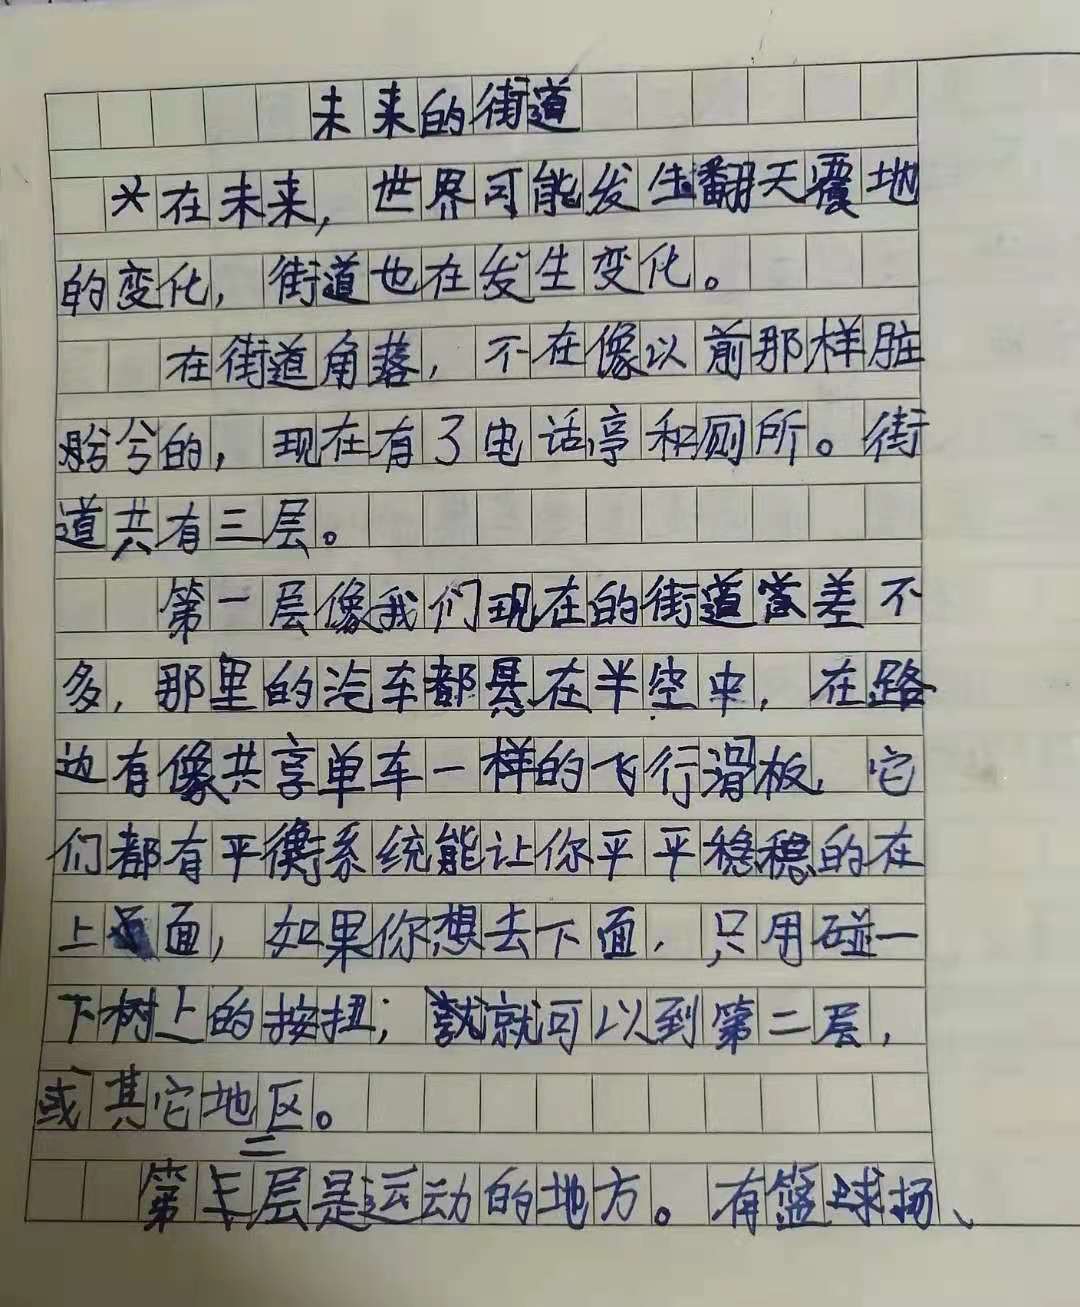 未来的街道
在未来，世界可能发生翻天震地
的变化，街道也在发生变化。
在街道角落，不在像以前那样脏
兮兮的，现在有了电话亭和厕所。街
道共有三层。
第一层像我们现在的街道差不
多，那里的汽车都悬在半空中，在路
边有像共享单车一样的飞行滑板，它
们都有平衡系统能让你平平稳稳的在
上面，如果你想去下面，只用碰一
下树上的按扭；就可以到第二层，
或其它地区。
第二层是运动的地方。有篮球场、